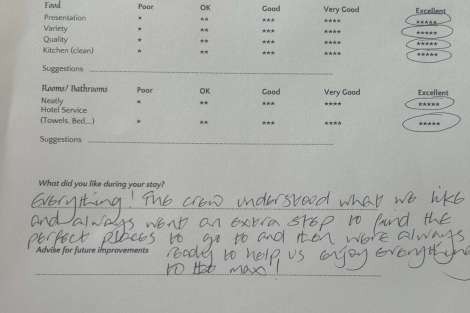 Food Poor OK Good Very Good Excellent
Presentation * ** *** **** *****
Variety * ** *** **** *****
Quality * ** *** **** *****
Kitchen (clean) * ** *** **** *****
Suggestions
Rooms/ Bathrooms Poor OK Good Very Good Excellent
Neatly * ** *** **** *****
Hotel Service
(Towels, Bed,..) * ** *** **** *****
Suggestions
What did you like during your stay?
Everything! The crew understood what we like
and always went an extra step to find the
perfect places to go to and then were always
Advise for future improvements ready to help us enjoy everything
to the max!